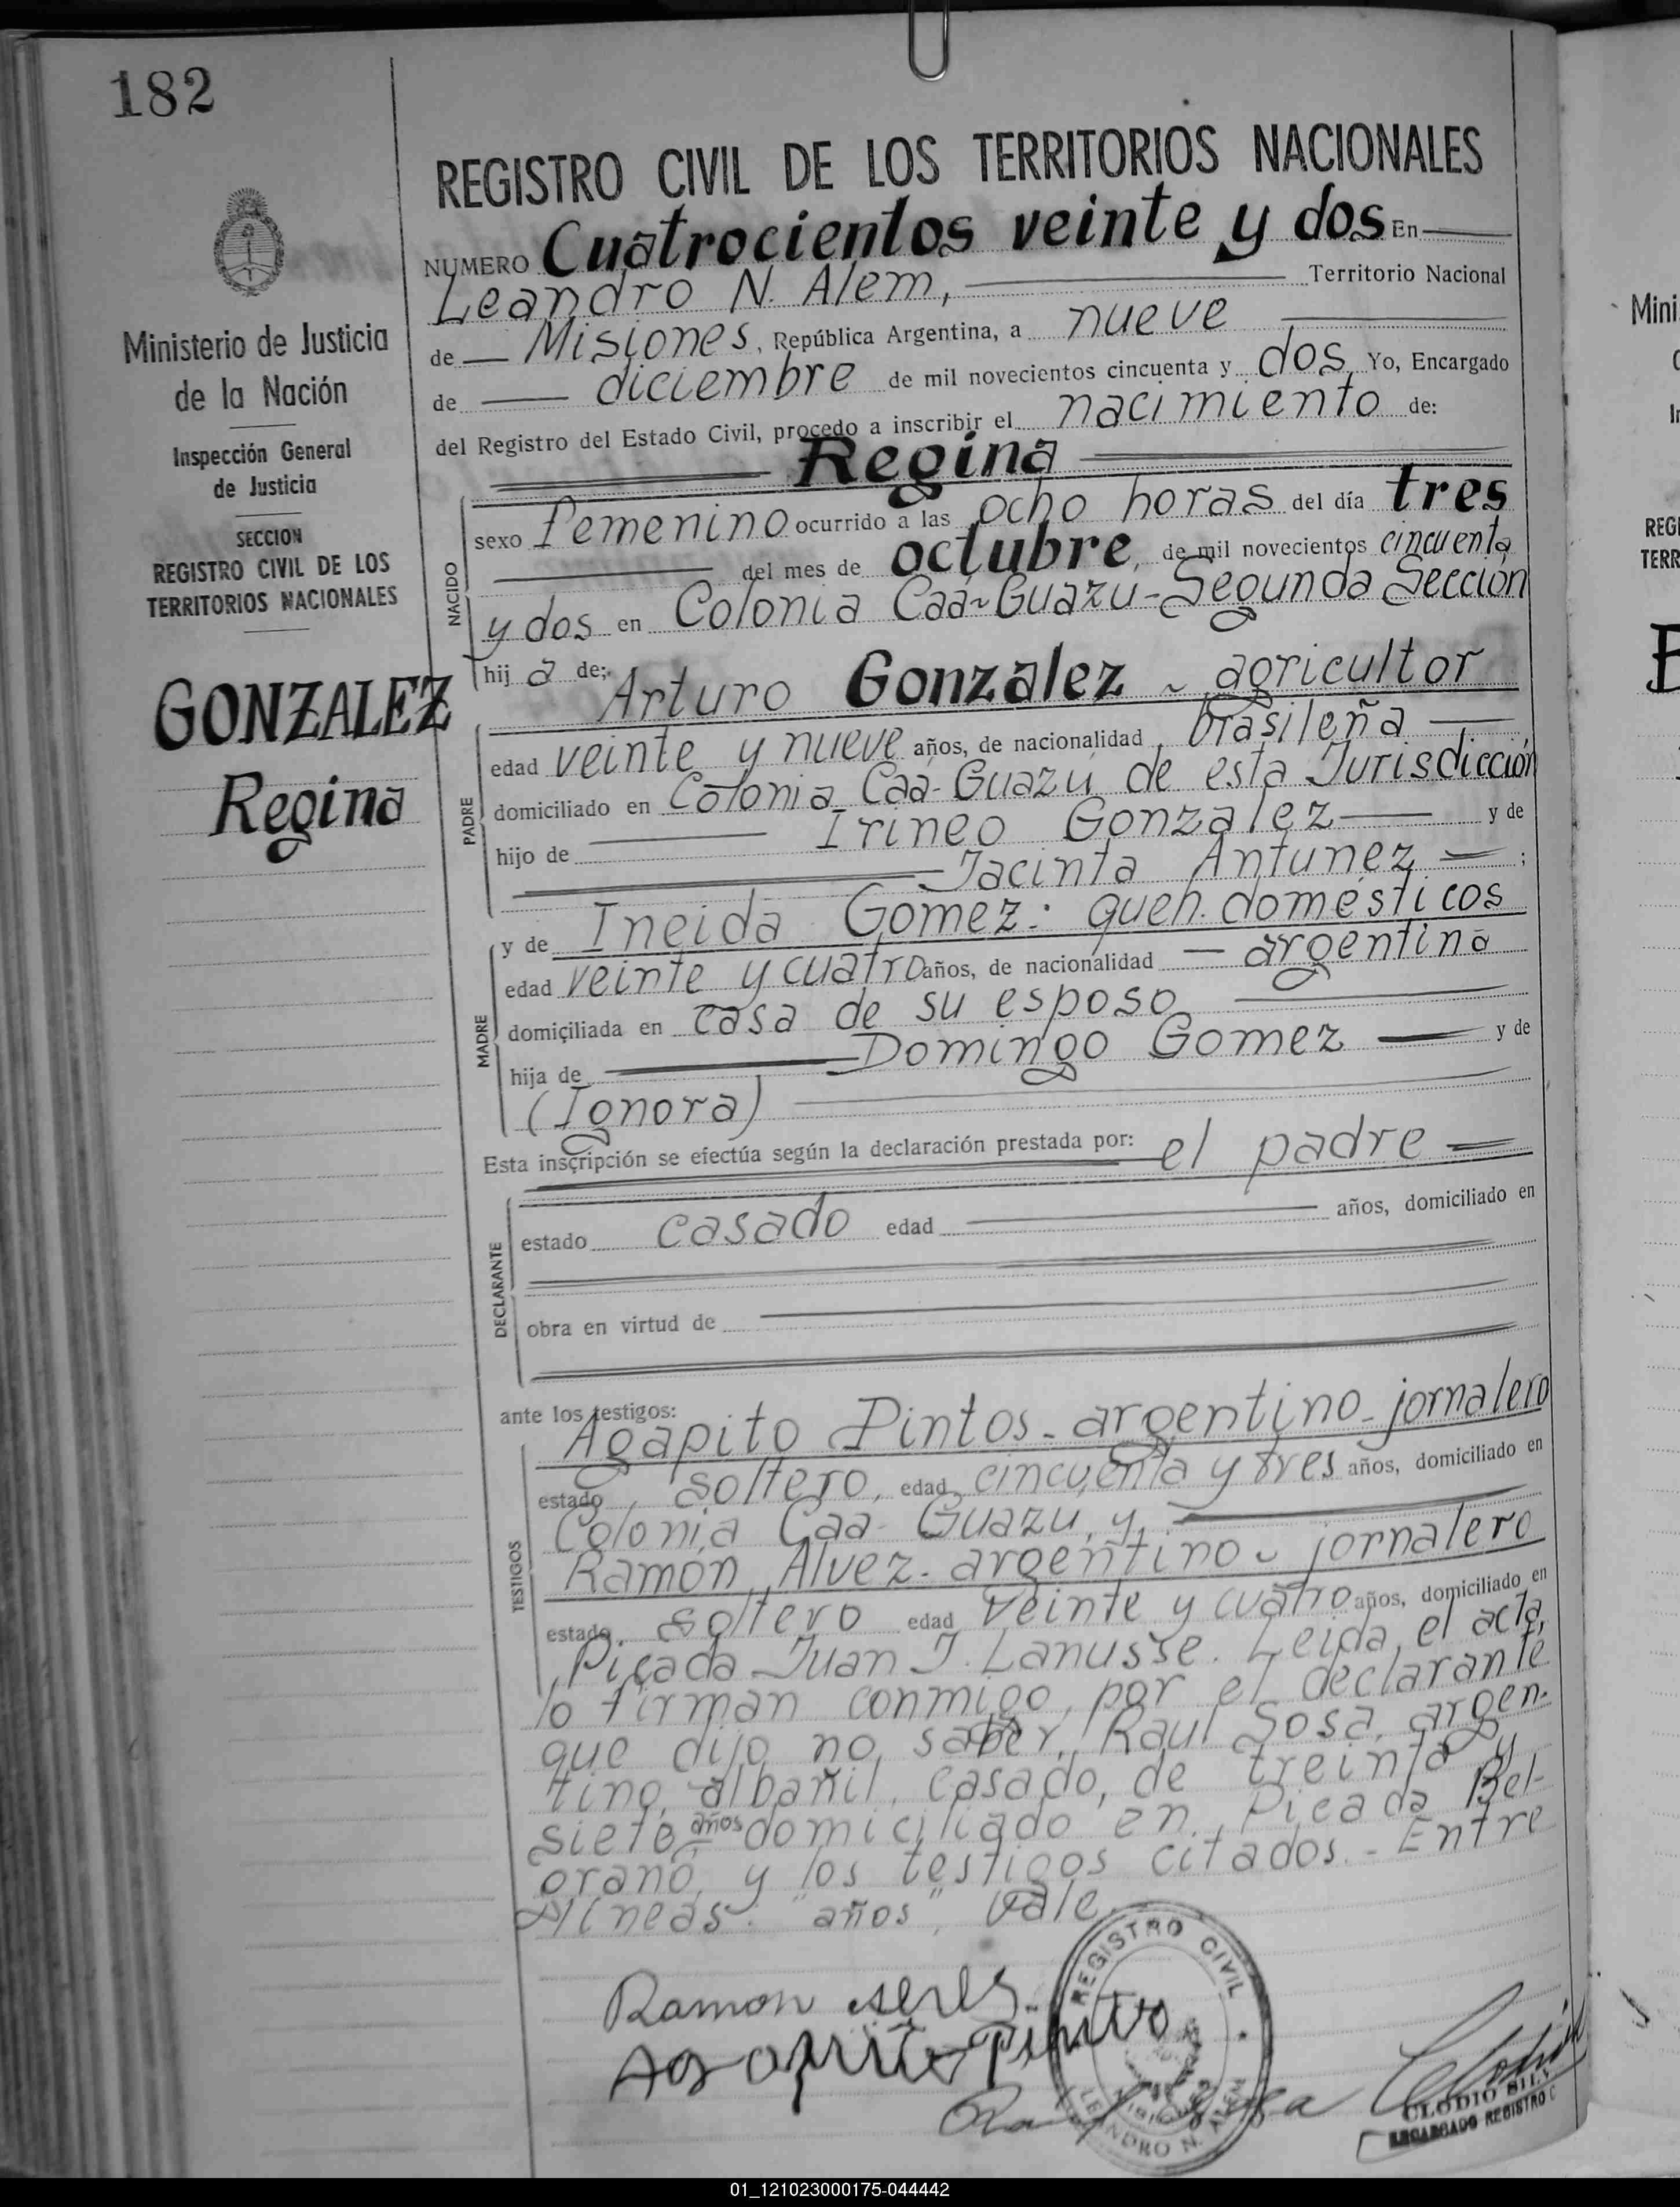 182
REGISTRO CIVIL DE LOS TERRITORIOS NACIONALES
NUMERO Cuatrocientos veinte y dos En
Leandro N. Alem, Territorio Nacional
de Misiones, República Argentina, a nueve
de diciembre de mil novecientos cincuenta y dos, Yo, Encargado
del Registro del Estado Civil, procedo a inscribir el nacimiento de:
Regina
sexo femenino ocurrido a las ocho horas del día tres
del mes de octubre, de mil novecientos cincuenta
y dos en Colonia Caa-Guazu-Segunda Sección
hij a de:
Arturo Gonzalez - agricultor
edad veinte y nueve años, de nacionalidad brasileña
domiciliado en Colonia Caa-Guazú de esta Jurisdicción
hijo de Irineo Gonzalez y de
Jacinta Antunez ;
y de Ineida Gomez: queh. domésticos
edad veinte y cuatro años, de nacionalidad argentina
domiciliada en casa de su esposo
hija de Domingo Gomez y de
(Ignora)
Esta inscripción se efectúa según la declaración prestada por: el padre
estado casado edad años, domiciliado en
obra en virtud de
ante los testigos:
Agapito Pintos - argentino - jornalero
estado, soltero, edad cincuenta y tres años, domiciliado en
Colonia Caa-Guazu, y,
Ramón Alvez - argentino - jornalero
estado, soltero edad veinte y cuatro años, domiciliado en
Picada Juan J. Lanusse. Leida el acta,
lo firman conmigo, por el declarante
que dijo no saber, Raul Sosa, argen-
tino, albañil, casado, de treinta y
siete años domiciliado en Picada Bel-
grano, y los testigos citados. - Entre
líneas: "años", Vale.
NACIDO
PADRE
MADRE
DECLARANTE
TESTIGOS
Ministerio de Justicia
de la Nación
Inspección General
de Justicia
SECCION
REGISTRO CIVIL DE LOS
TERRITORIOS NACIONALES
GONZALEZ
Regina
Ramon
Agapito Pinto
REGISTRO CIVIL
LEANDRO N. ALEM
CLODIO
ENCARGADO REGISTRO C
Mini
REGI
TERR
01_121023000175-044442